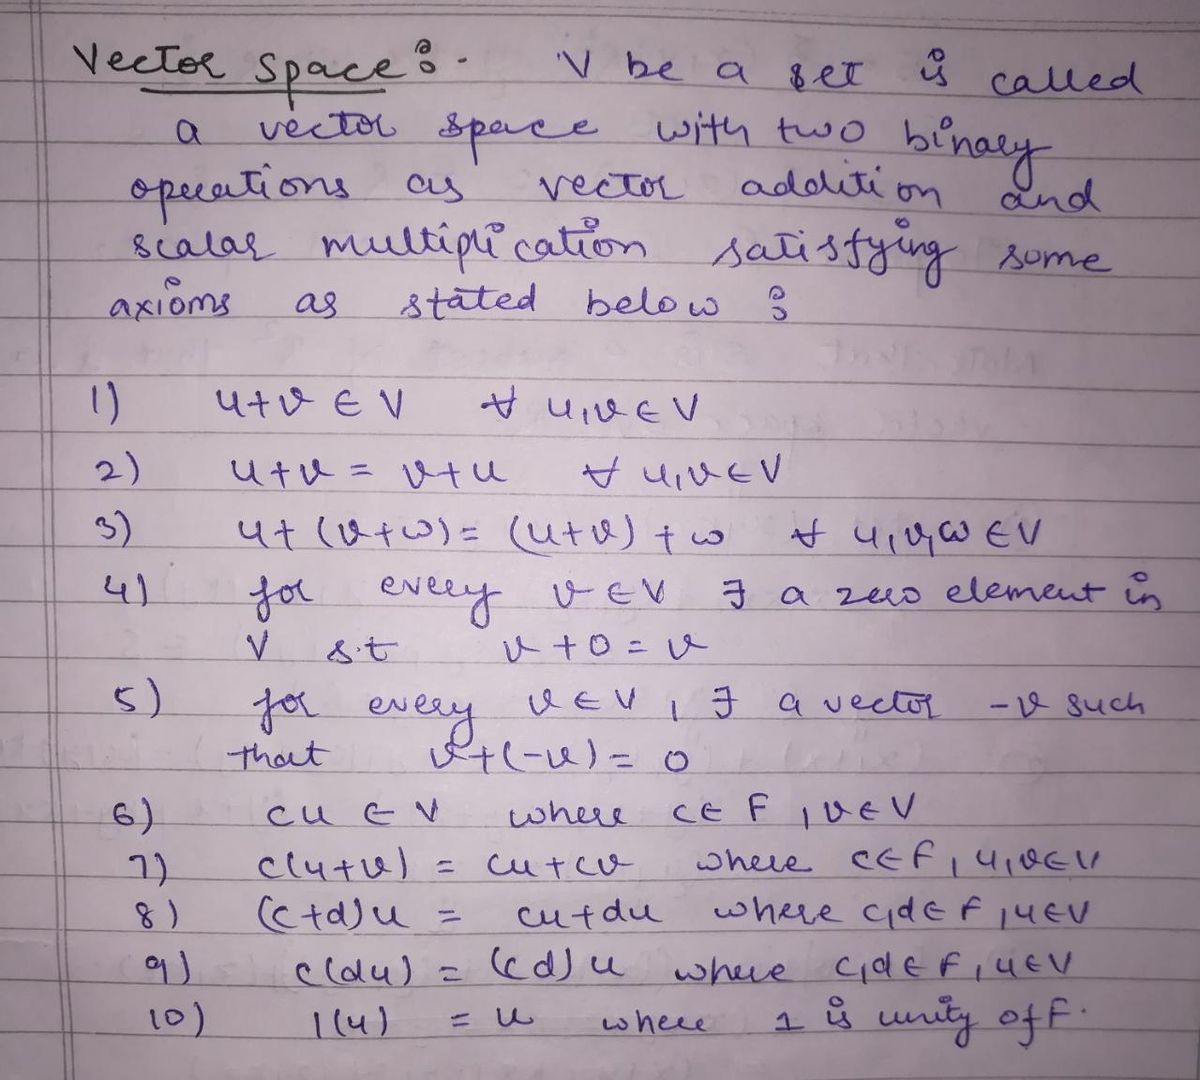 Vector space :-  V be a set is called
a vector space with two binary
operations as vector addition and
scalar multiplication satisfying some
axioms as stated below :
1) u+v ∈ V ∀ u,v ∈ V
2) u+v = v+u ∀ u,v ∈ V
3) u+(v+w) = (u+v)+w ∀ u,v,w ∈ V
4) for every v ∈ V ∃ a zero element in
V s.t v+0 = v
5) for every v ∈ V, ∃ a vector -v such
that v+(-v) = 0
6) cu ∈ V where c ∈ F, v ∈ V
7) c(u+v) = cu+cv where c ∈ F, u,v ∈ V
8) (c+d)u = cu+du where c,d ∈ F, u ∈ V
9) c(du) = (cd)u where c,d ∈ F, u ∈ V
10) 1(u) = u where 1 is unity of F.